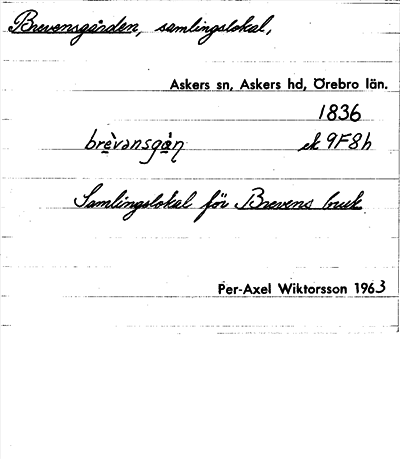 Brevensgården, samlingslokal,
Askers sn, Askers hd, Örebro län.
1836
brèvansgå̀n ek 9F8h
Samlingslokal för Brevens bruk
Per-Axel Wiktorsson 1963